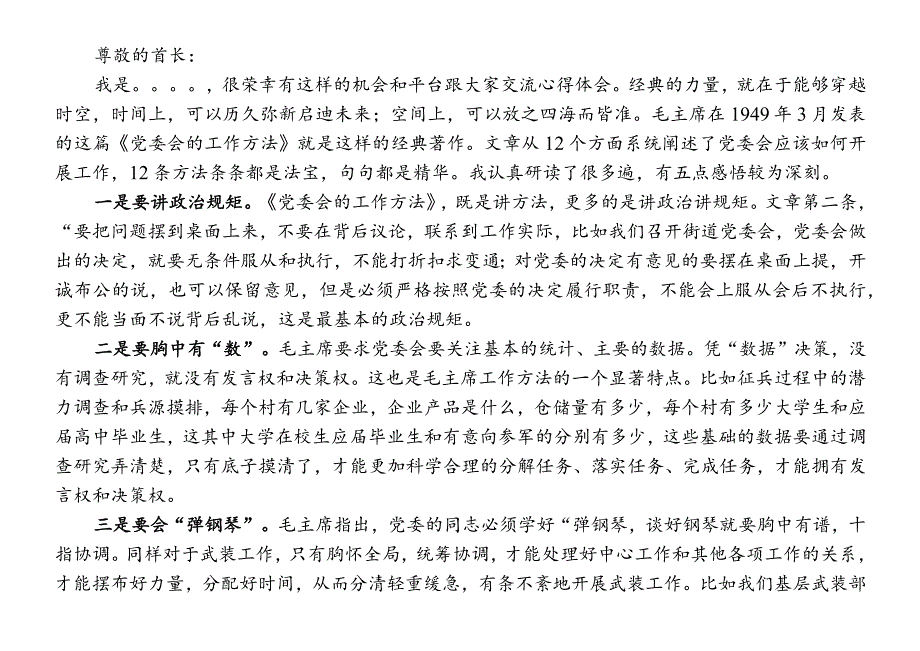 尊敬的首长：
我是。。。。，很荣幸有这样的机会和平台跟大家交流心得体会。经典的力量，就在于能够穿越
时空，时间上，可以历久弥新启迪未来；空间上，可以放之四海而皆准。毛主席在 1949 年 3 月发表
的这篇《党委会的工作方法》就是这样的经典著作。文章从 12 个方面系统阐述了党委会应该如何开
展工作，12 条方法条条都是法宝，句句都是精华。我认真研读了很多遍，有五点感悟较为深刻。
一是要讲政治规矩。《党委会的工作方法》，既是讲方法，更多的是讲政治讲规矩。文章第二条，
“要把问题摆到桌面上来，不要在背后议论，联系到工作实际，比如我们召开街道党委会，党委会做
出的决定，就要无条件服从和执行，不能打折扣求变通；对党委的决定有意见的要摆在桌面上提，开
诚布公的说，也可以保留意见，但是必须严格按照党委的决定履行职责，不能会上服从会后不执行，
更不能当面不说背后乱说，这是最基本的政治规矩。
二是要胸中有“数”。毛主席要求党委会要关注基本的统计、主要的数据。凭“数据”决策，没
有调查研究，就没有发言权和决策权。这也是毛主席工作方法的一个显著特点。比如征兵过程中的潜
力调查和兵源摸排，每个村有几家企业，企业产品是什么，仓储量有多少，每个村有多少大学生和应
届高中毕业生，这其中大学在校生应届毕业生和有意向参军的分别有多少，这些基础的数据要通过调
查研究弄清楚，只有底子摸清了，才能更加科学合理的分解任务、落实任务、完成任务，才能拥有发
言权和决策权。
三是要会“弹钢琴”。毛主席指出，党委的同志必须学好“弹钢琴，谈好钢琴就要胸中有谱，十
指协调。同样对于武装工作，只有胸怀全局，统筹协调，才能处理好中心工作和其他各项工作的关系，
才能摆布好力量，分配好时间，从而分清轻重缓急，有条不紊地开展武装工作。比如我们基层武装部